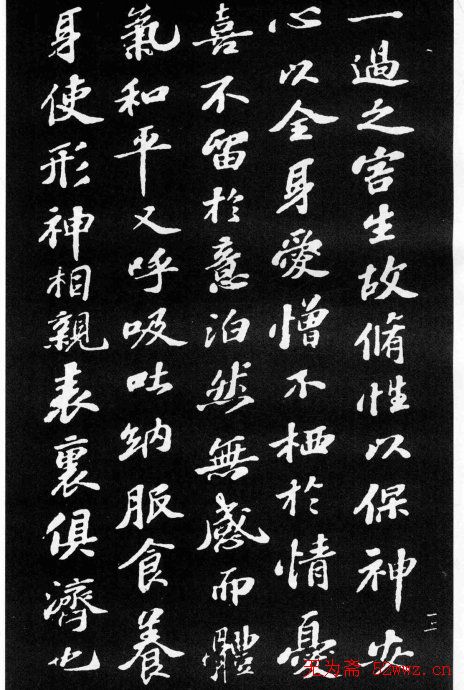 一過之害生故脩性以保神安
心以全身愛憎不栖於情憂
喜不留於意泊然無感而體
氣和平又呼吸吐納服食養
身使形神相親表裏俱濟也
三
无为斋 52wwz.cn